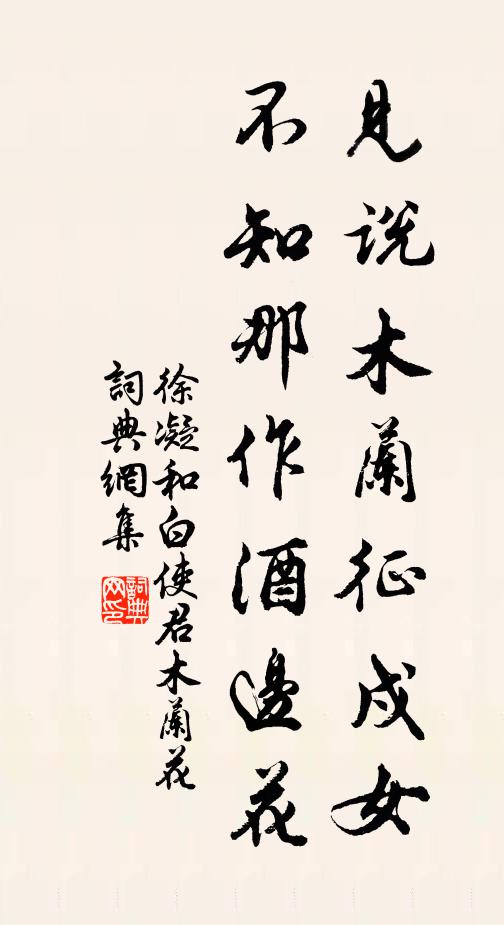 見説木蘭征戍女
不知那作酒邊花
徐凝和白使君木蘭花
詞典網集
詞典
网印